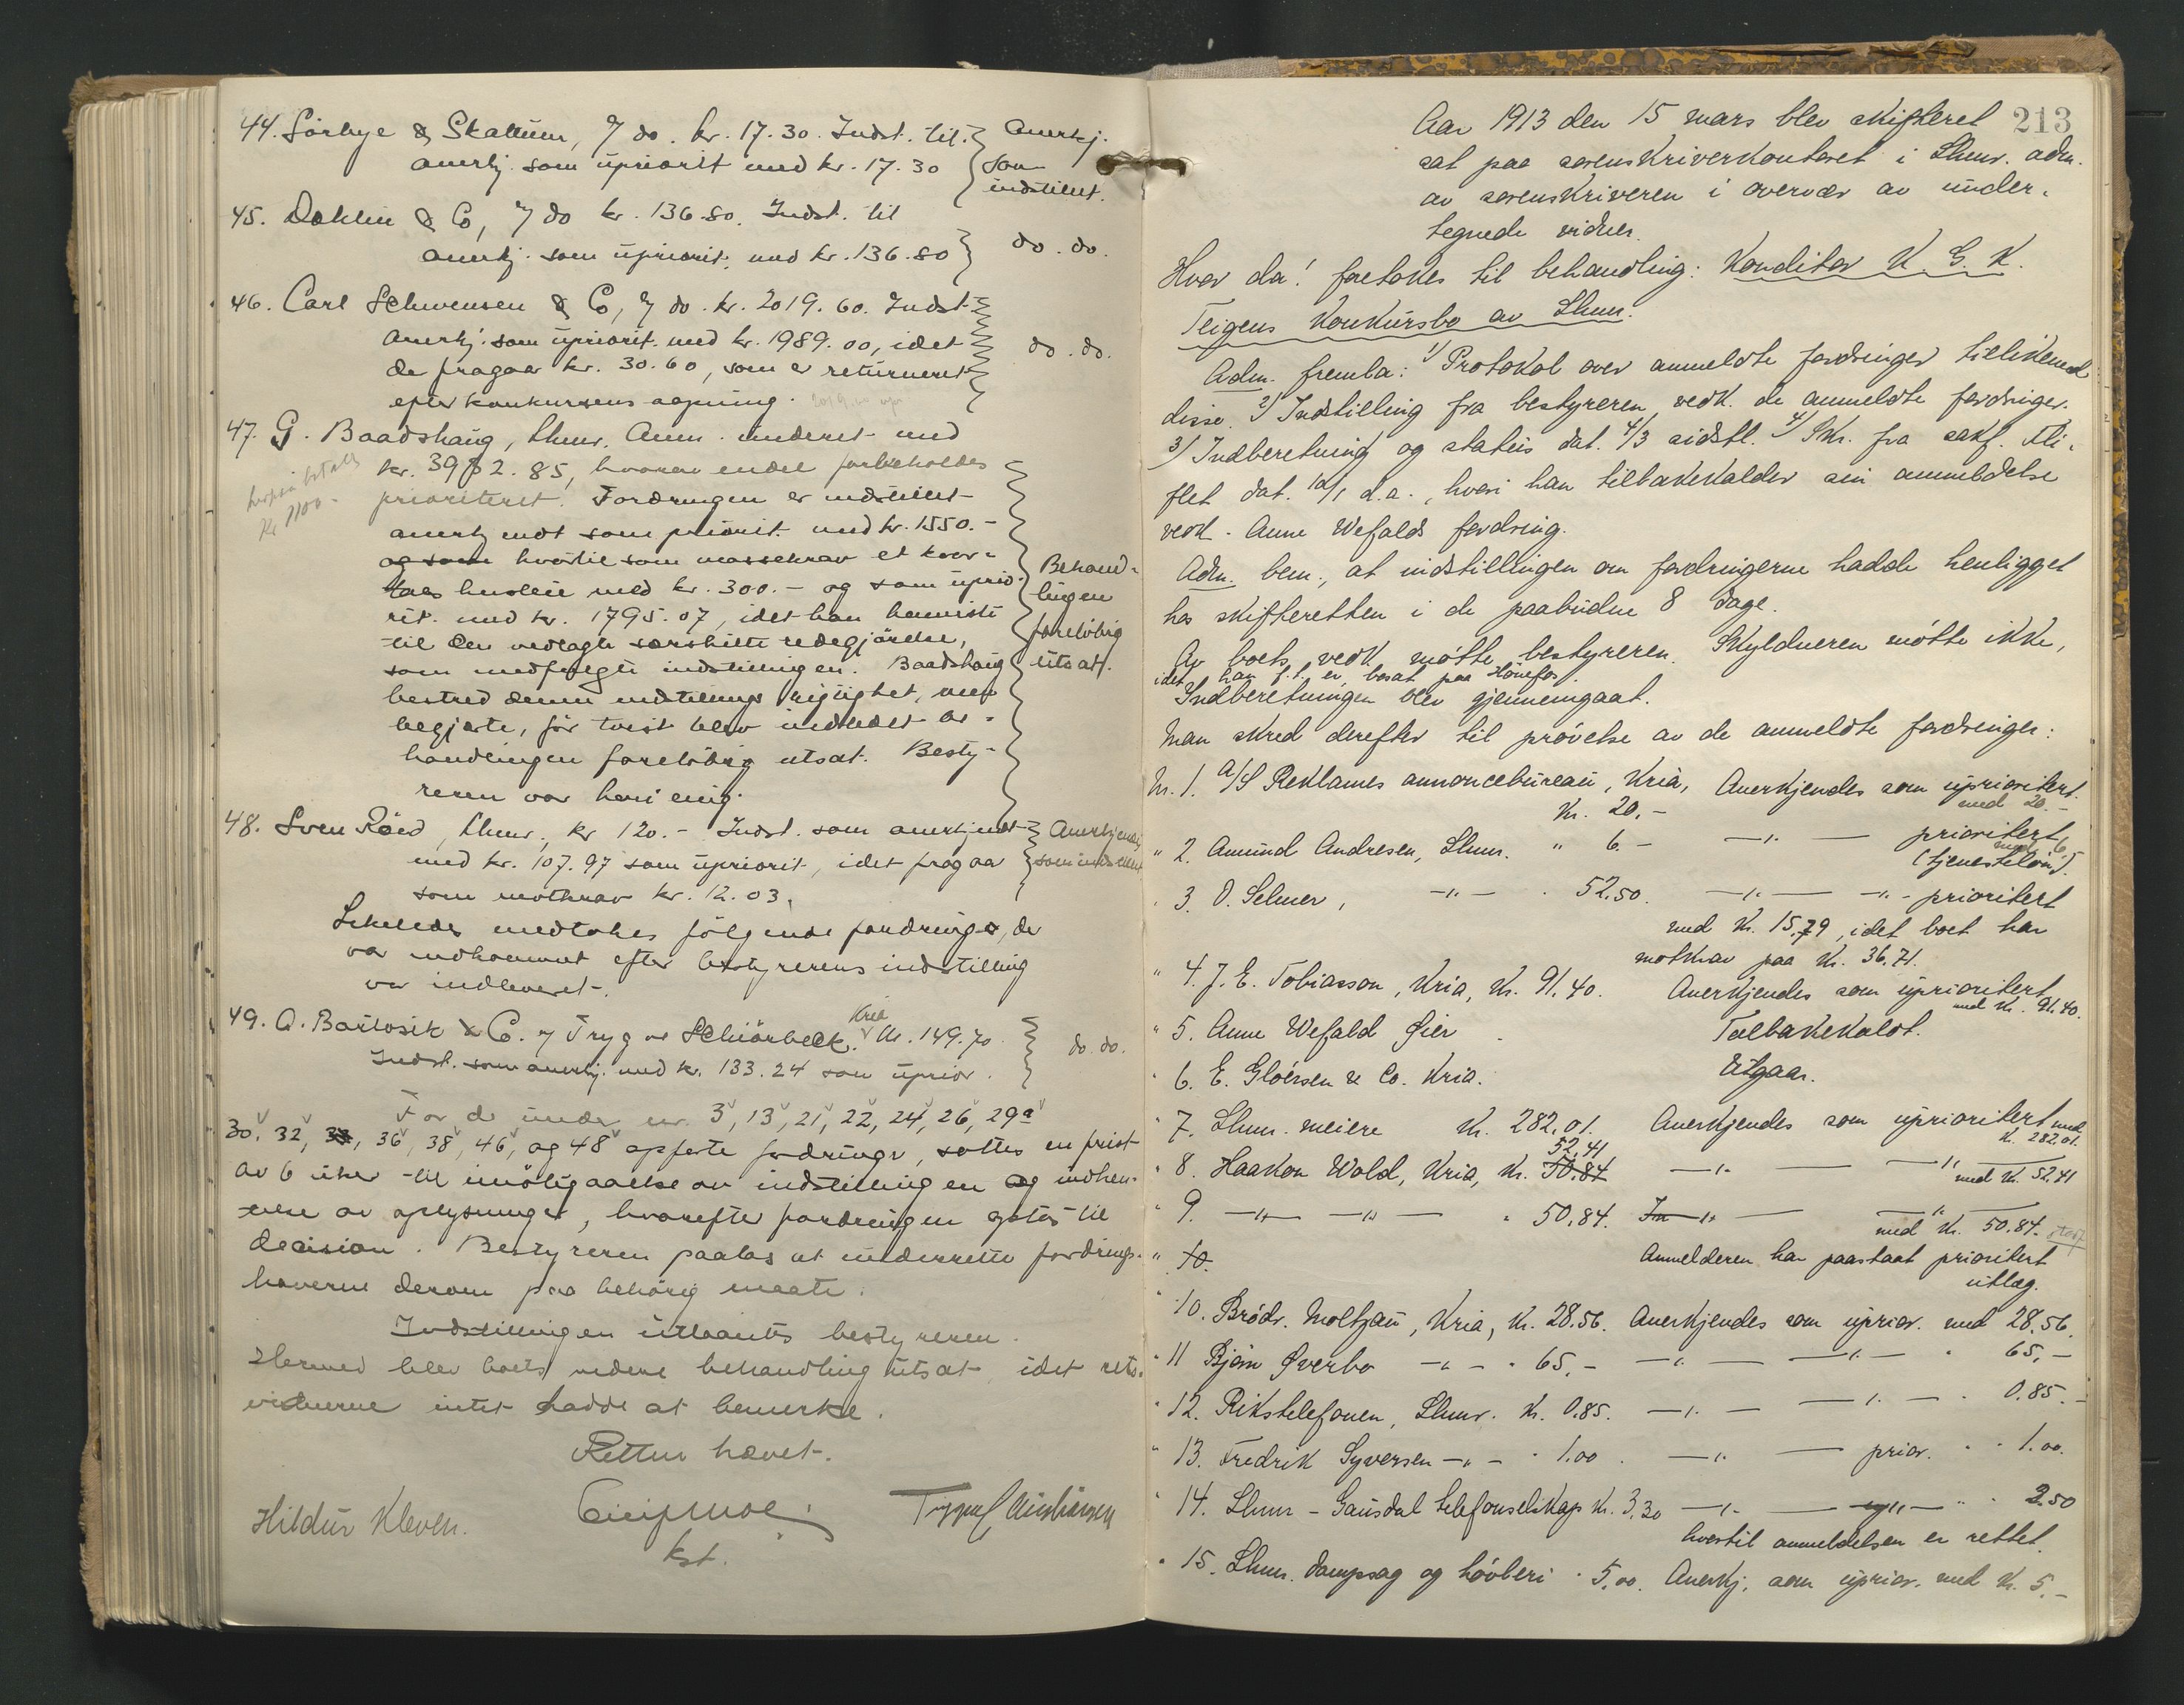 44. Sörbye & Skattum, 7 do. kr. 17.30. Indst. til
anerkj. som upriorit med kr. 17.30
Anerkj.
som
indstillet.
45. Dæhlin & Co, 7 do kr. 136.80. Indst. til
anerkj. som upriorit. med kr. 136.80
do. do.
46. Carl Schwensen & Co, 7 do. kr. 2019.60. Indst.
anerkj. som upriorit. med kr. 1989.00, idet
de fragaar kr. 30.60, som er returneret
efter konkursens aapning.
do. do.
47. G. Baadshaug, Lhmr. Anm. underet. med
kr. 3982.85, hvorav endel forbeholdes
prioriteret. Fordringen er indstillet
anerkjendt som priorit. med kr. 1550.-
og som hvortil som massekrav et kvar-
tals husleie med kr. 300.- og som uprio-
rit. med kr. 1795.07, idet han henviste
til den vedlagte særskilte redegjörelse,
som medfulgte indstillingen. Baadshaug
bestred denne indstillings rigtighet, men
begjærte, för tvist blev indledet be-
handlingen forelöbig utsat. Besty-
reren var heri enig.
herpaa betalt
Kr 1100-
Behand-
lingen
forelöbig
utsat.
48. Sven Röed, Lhmr, kr 120.- Indst. som anerkjendt
med kr. 107.97 som upriorit, idet fragaar
som motkrav kr. 12.03.
Anerkjendes
som indstillet
Likeledes medtokes fölgende fordringer, der
var indkommet efter bestyrerens indstilling
var indleveret.
49. A. Bartosik & Co. 7 Tryg og Schiörbeck. Kria kr. 149.70
Indst. som anerkj. med kr. 133.24 som uprior.
do. do.
For de under nr. 3, 13, 21, 22, 24, 26, 29a
30, 32, 33, 36, 38, 46, og 48 opförte fordringer, sattes en frist
av 6 uker til imötegaaelse av indstillingen og indhen-
telse av oplysninger, hvorefter fordringen gotes til
decision. Bestyreren paalas at underrette fordrings-
haverne derom paa behörig maate.
Indstillingen utlaantes bestyreren.
Hermed blev boets videre behandling utsat, idet rets-
vidnerne intet hadde at bemerke.
Retten hævet.
Hildur Kleven.
kst.
213
Aar 1913 den 15 mars blev skifteret
sat paa sorenskriverkontoret i Lhmr. adm.
av sorenskriveren i overvær av under-
tegnede vidner.
Hvor da! foretokes til behandling: Konditor K. G. K.
Teigens konkursbo av Lhmr.
Adm. fremla: 1) Protokol over anmeldte fordringer tillikemed
disse. 2) Indstilling fra bestyreren vedk. de anmeldte fordringer.
3) Indberetning og status dat. 4/3 sidstl. 4) Skr. fra sakf. Fli-
flet dat. 12/1 d.a., hvori han tilbakekalder sin anmeldelse
vedk. Anne Wefalds fordring.
Adm. bem., at indstillingen om fordringerne hadde henligget
hos skifteretten i de paabudne 8 dage.
Av boets vedk. mötte bestyreren. Skyldneren mötte ikke,
idet han f.t. er bosat paa Hönefos.
Indberetningen blev gjennemgaat.
Man skred derefter til prövelse av de anmeldte fordringer:
Nr. 1. A/S Reklames annoncebureau, Kria, Anerkjendes som uprioritert
Kr. 20,- med 20.-
" 2. Amund Andresen, Lhmr. " 6.- —"— prioritert
med 6.
(tjenestelön).
" 3. O. Selmer, —"— " 52,50. —"— —"— prioritert
med Kr. 15,79, idet boet har
motkrav paa Kr. 36,71.
" 4. J. E. Tobiasson, Kria, Kr. 91.40. Anerkjendes som uprioritert
med Kr. 91.40.
" 5. Anne Wefald Öier Tilbakekaldt.
" 6. E. Gloersen & Co. Kria. Utgaar.
" 7. Lhmr. meieri Kr. 282,01. Anerkjendes som uprioritert med
Kr. 282.01.
52,41
" 8. Haakon Wold, Kria, Kr. 50.84 —"— —"—
med Kr. 52,41
" 9. —"— —"— " 50,84. —"— —"—
med Kr. 50.84.
" 10. Anmelderen har paastaat prioritert
utlæg.
" 10. Brödr. Moltzau, Kria, Kr. 28.56. Anerkjendes som uprior. med 28,56.
" 11 Bjön Øverbo —"— " 65,- —"— —"— " 65,-
" 12. Rikstelefonen, Lhmr. Kr. 0.85. —"— —"— " 0.85.-
" 13. Fredrik Syversen —"— " 1.00. —"— prior. " " 1.00.
" 14. Lhmr - Gausdal telefonselskap Kr. 3.30 —"— —"— " " 2.50
hvortil anmeldelsen er rettet.
" 15. Lhmr. dampsag og hövleri " 5,00. Anerkj. som uprior. med Kr. 5.-